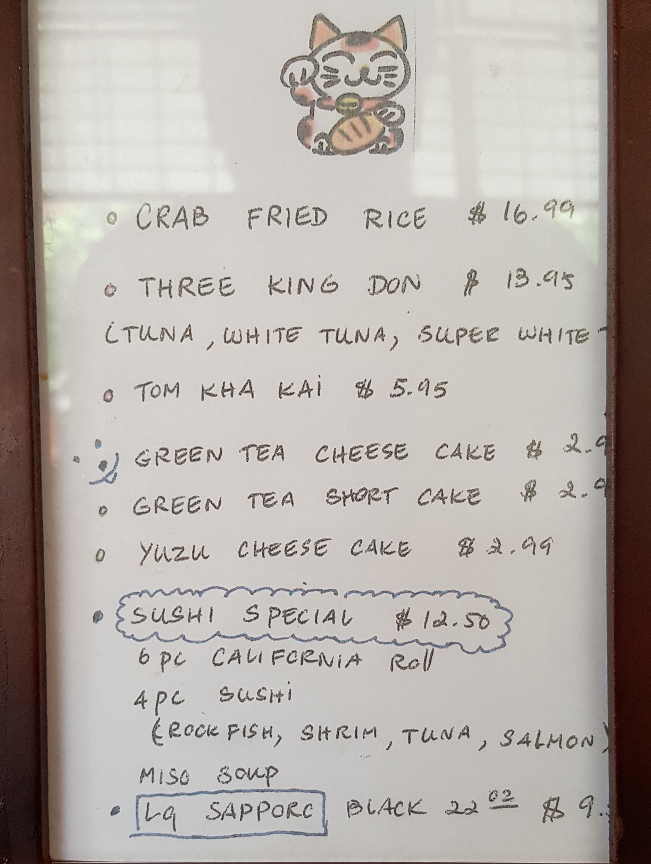 CRAB FRIED RICE $ 16.99
THREE KING DON $ 13.95
(TUNA, WHITE TUNA, SUPER WHITE
TOM KHA KAI $ 5.95
GREEN TEA CHEESE CAKE $ 2.9
GREEN TEA SHORT CAKE $ 2.9
YUZU CHEESE CAKE $ 2.99
SUSHI SPECIAL $ 12.50
6 pc CALIFORNIA Roll
4 pc SUSHI
(ROCK FISH, SHRIM, TUNA, SALMON)
MISO SOUP
Lg SAPPORO BLACK 22 oz $ 9.